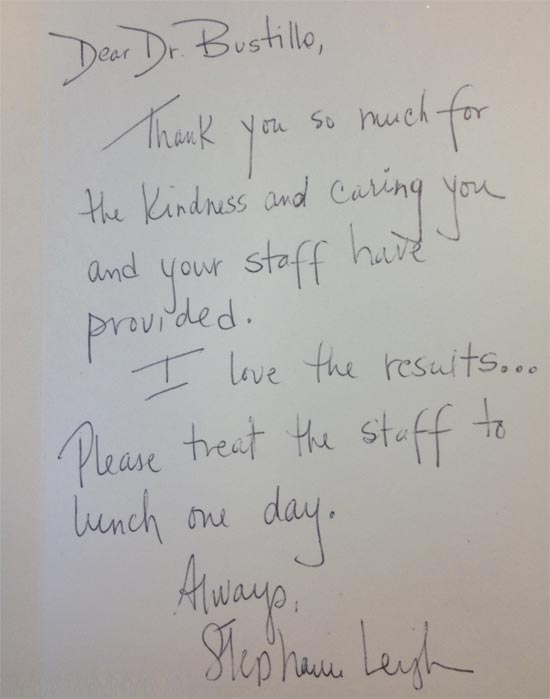 Dear Dr. Bustillo,
Thank you so much for
the kindness and caring you
and your staff have
provided.
I love the results...
Please treat the staff to
lunch one day.
Always,
Stephanie Leigh